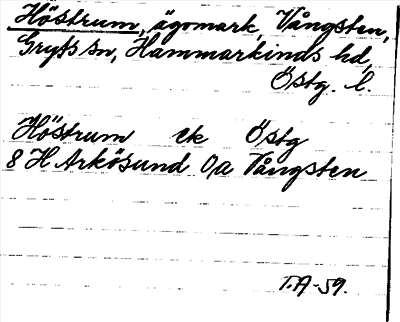 Höstrum, ägomark, Vångsten,
Gryts sn, Hammarkinds hd,
Östg. l.
Höstrum ek Östg
8 H Arkösund 0,a Vångsten
T.A-59.